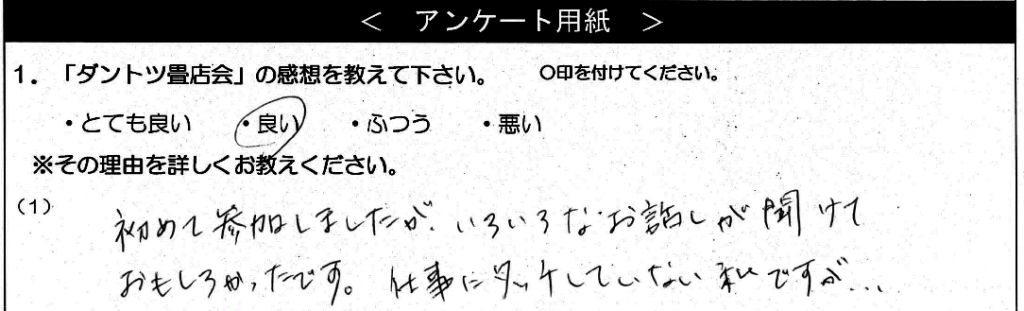 < アンケート用紙 >
1. 「ダントツ畳店会」の感想を教えて下さい。 ○印を付けてください。
・とても良い ・良い ・ふつう ・悪い
※その理由を詳しくお教えください。
(1)
初めて参加しましたが、いろいろなお話しが聞けて
おもしろかったです。仕事にタッチしていない私ですが...